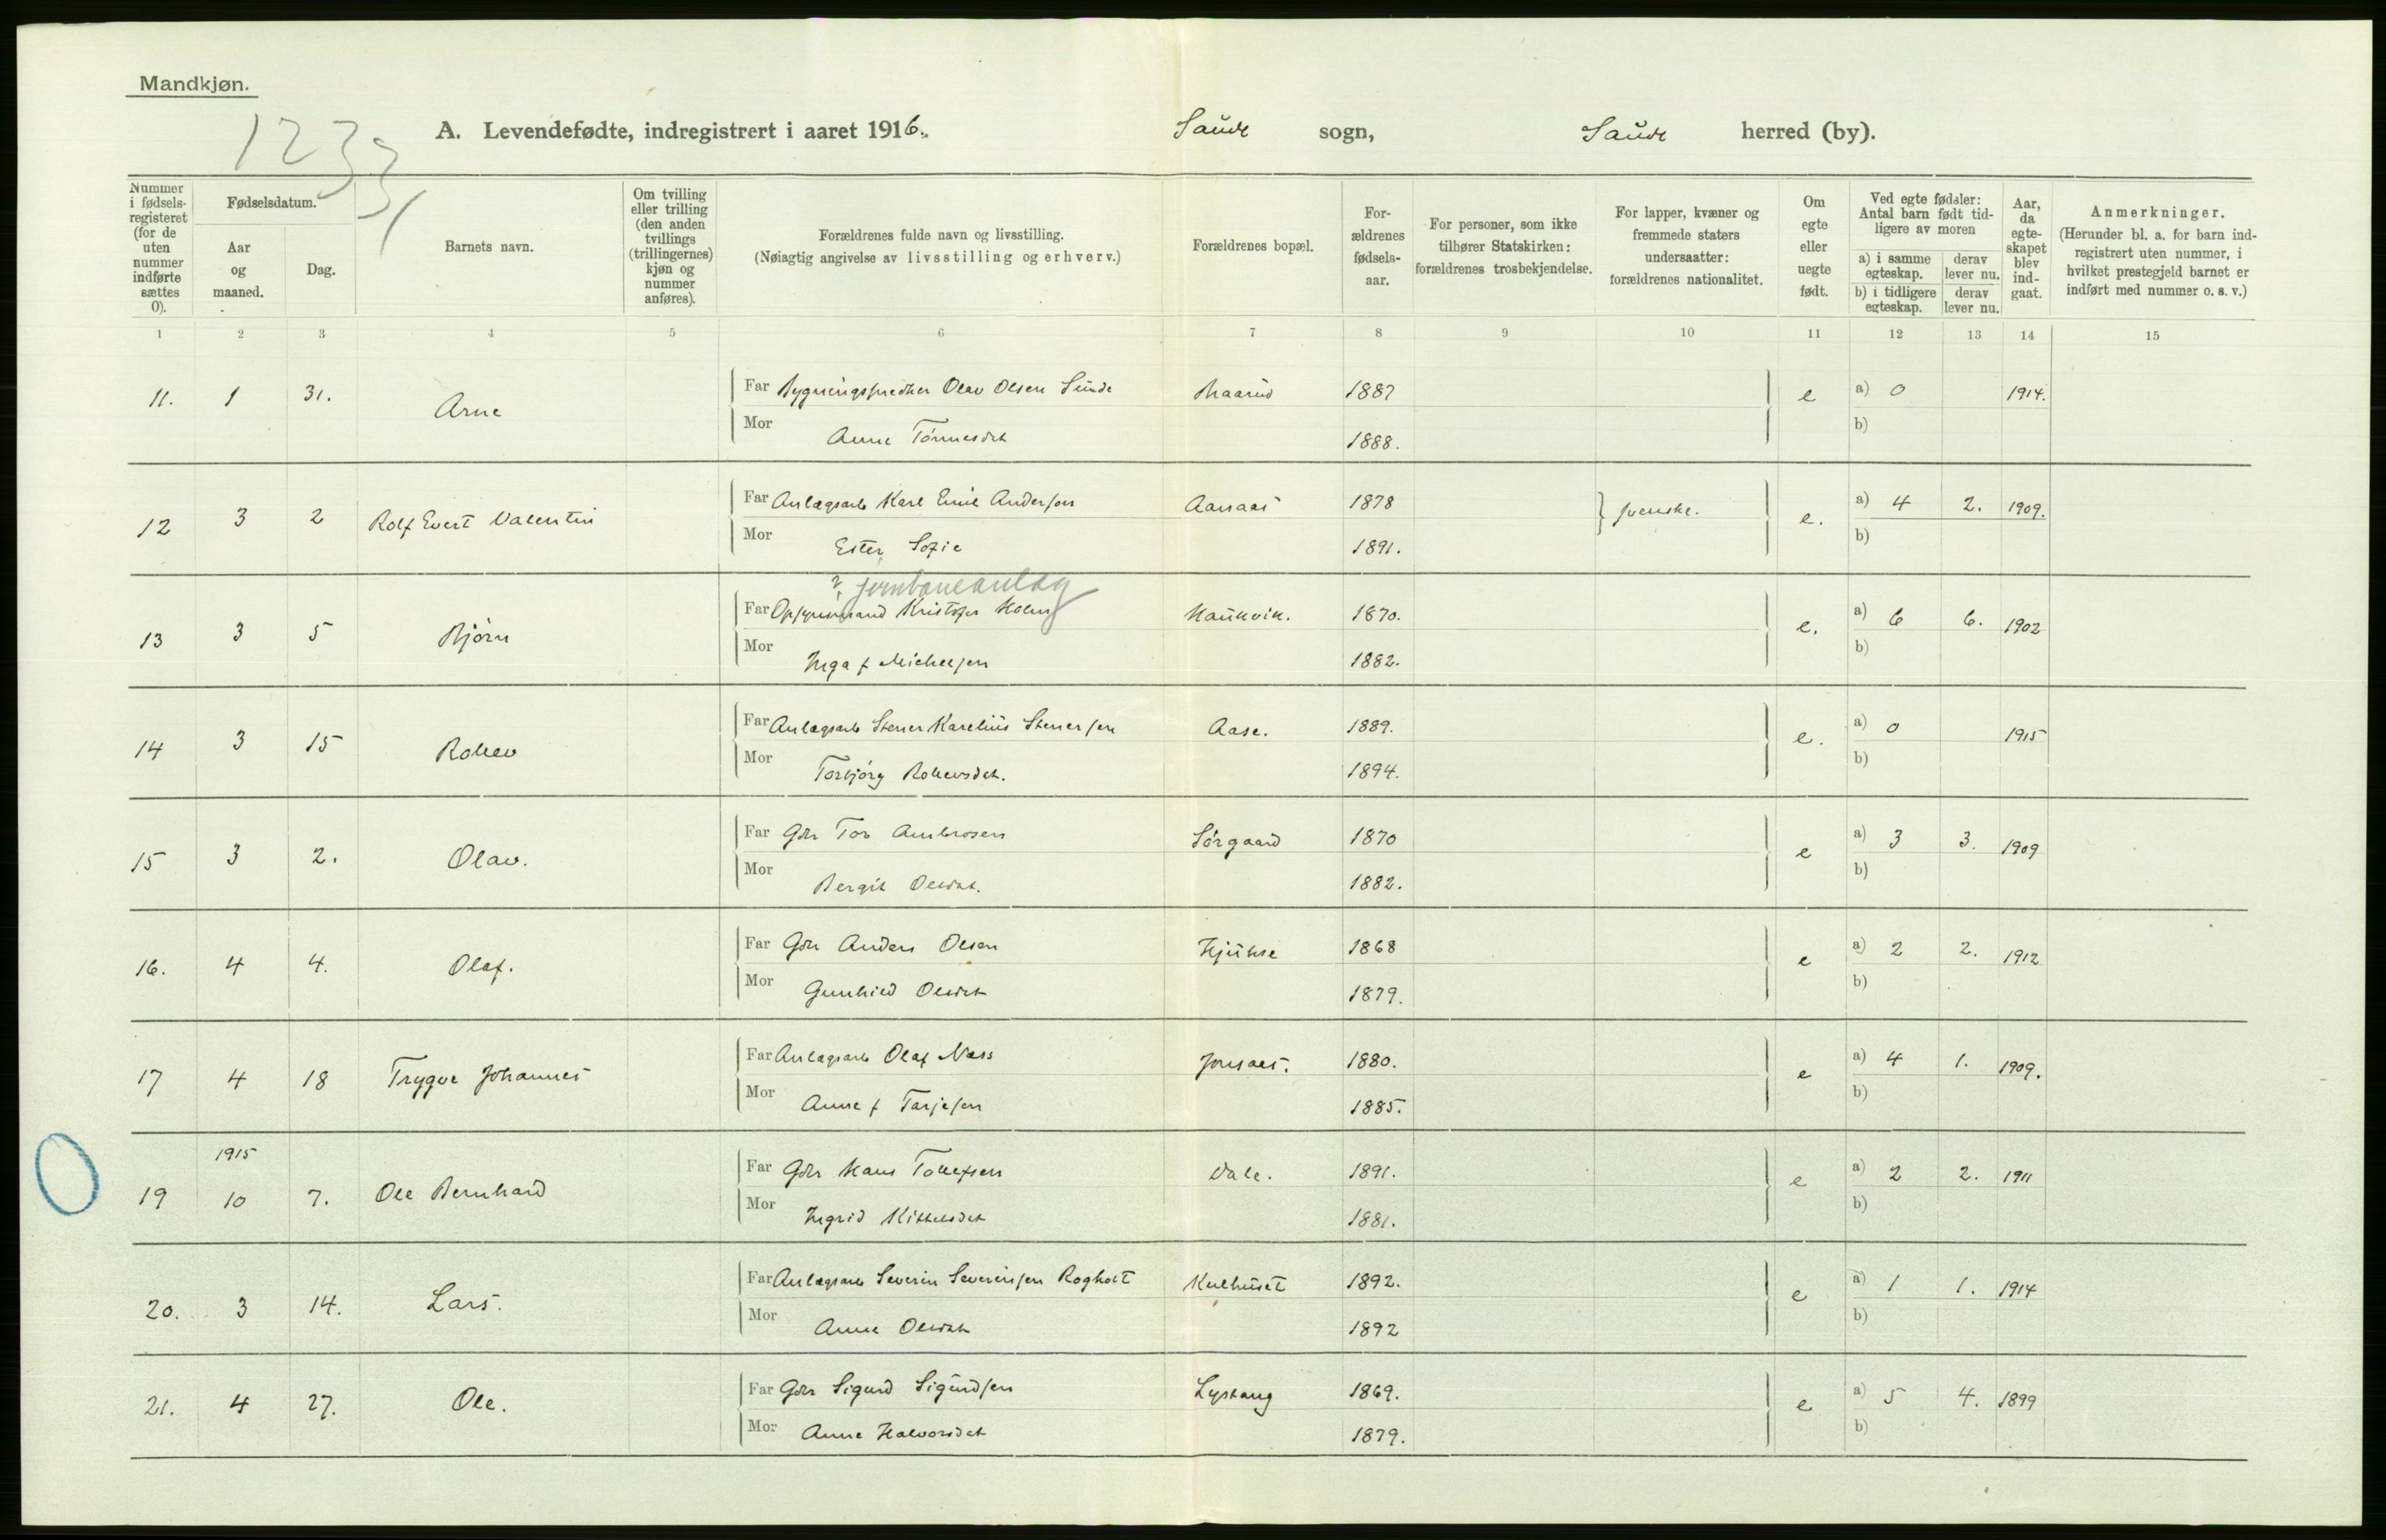 Mandkjøn.
1233
A. Levendefødte, indregistrert i aaret 1916. Saude sogn, Saude herred (by).
Nummer i fødselsregisteret (for de uten nummer indførte sættes 0).
Fødselsdatum.
Aar og maaned.
Dag.
Barnets navn.
Om tvilling eller trilling (den anden tvillings (trillingernes) kjøn og nummer anføres).
Forældrenes fulde navn og livsstilling.
(Nøiagtig angivelse av livsstilling og erhverv.)
Forældrenes bopæl.
Forældrenes fødselsaar.
For personer, som ikke tilhører Statskirken: forældrenes trosbekjendelse.
For lapper, kvæner og fremmede staters undersaatter: forældrenes nationalitet.
Om egte eller uegte født.
Ved egte fødsler: Antal barn født tidligere av moren
a) i samme egteskap. derav lever nu.
b) i tidligere egteskap. derav lever nu.
Aar, da egteskapet blev indgaat.
Anmerkninger.
(Herunder bl. a. for barn indregistrert uten nummer, i hvilket prestegjeld barnet er indført med nummer o. s. v.)
1 2 3 4 5 6 7 8 9 10 11 12 13 14 15
11. 1 31. Arne Far Olav Olsen Sunde 1887 e a) 0 1914.
Mor Anne Tönnesdt 1888. b)
12 3 2 Rolf Evert Valentin Far Anlægsarb Karl Emil Anderssen Aaraas 1878 svenske. e. a) 4 2. 1909.
Mor Ester Sofie 1891. b)
? jernbaneanlæg
13 3 5 Bjørn Far Opsynsmand Kristofer Holm Haukvik. 1870. e. a) 6 6. 1902
Mor Inga f Michelsen 1882. b)
14 3 15 Rollev Far Anlægsarb Stener Karelius Stenersen Aase. 1889. e. a) 0 1915
Mor Torbjörg Rollevsdt. 1894. b)
15 3 2. Olav. Far Gbr Tov Ambrosen Sörgaard 1870 e a) 3 3. 1909
Mor Bergit Olsdt. 1882. b)
16. 4 4. Olaf. Far Gbr Anders Olsen Hjukse 1868 e a) 2 2. 1912
Mor Gunhild Olsdt 1879. b)
17 4 18 Trygve Johannes Far Anlægsarb Olaf Næss Jonsaas. 1880. e a) 4 1. 1909.
Mor Anne f Tarjesen 1885. b)
1915
19 10 7. Ole Bernhard Far Gbr Hans Tollefsen Dale. 1891. e a) 2 2. 1911
Mor Ingrid Kittelsdt 1881. b)
20. 3 14. Lars. Far Anlægsarb Severin Severinsen Rogholt Kulhuset 1892. e a) 1 1. 1914
Mor Anne Olsdt 1892 b)
21. 4 27. Ole. Far Gbr Sigurd Sigurdsen Lyshaug 1869. e a) 5 4. 1899
Mor Anne Halvorsdt 1879. b)